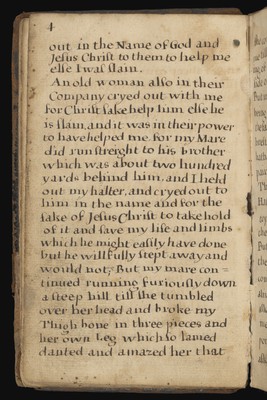 4
out in the Name of God and
Jesus Christ to them to help me
else I was slain.
An old woman also in their
Company cryed out with me
for Christ sake help him else he
is slain, and it was in their power
to have helped me. for my Mare
did run streight to his brother
which was about two hundred
yards behind him, and I held
out my halter, and cryed out to
him in the name and for the
sake of Jesus Christ to take hold
of it and save my life and limbs
which he might easily have done
but he willfully stept away and
would not; But my mare con=
tinued running furiously down
a steep hill till she tumbled
over her head and broke my
Thigh bone in three pieces and
her own Leg which so lamed
danted and amazed her that